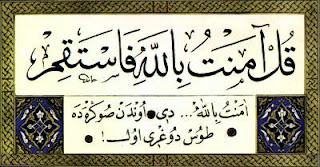 قُلْ آمَنْتُ بِاللّٰهِ فَاسْتَقِمْ
اٰمَنْتُ بِاللّٰهِ... دِی • اُونْدَنْ صُوكْرَه دَه
• طُوسْ دُوغْرِی اُولْ! •